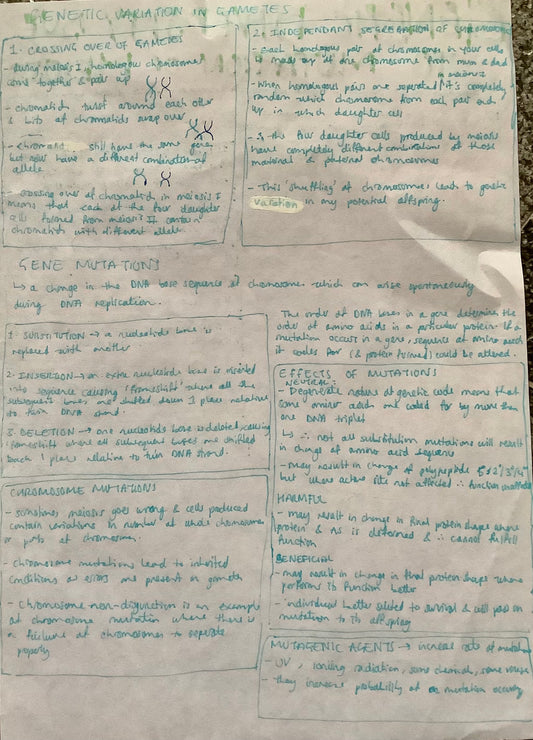 GENETIC VARIATION IN GAMETES
1. CROSSING OVER OF GAMETES
- during meiosis I, homologous chromosomes
come together & pair up
- chromatids twist around each other
& bits of chromatids swap over
- chromatids still have the same genes
but now have a different combination of
alleles
- crossing over of chromatids in meiosis I
means that each of the four daughter
cells formed from meiosis II contain
chromatids with different alleles
2. INDEPENDANT SEGREGATION OF CHROMOSOMES
- Each homologous pair of chromosomes in your cells
is made up of one chromosome from mum & dad
in meiosis I
- When homologous pairs are separated it's completely
random which chromosome from each pair end
up in which daughter cell
- So the four daughter cells produced by meiosis
have completely different combinations of those
maternal & paternal chromosomes
- This 'shuffling' of chromosomes leads to genetic
variation in any potential offspring.
GENE MUTATIONS
↳ a change in the DNA base sequence of chromosomes which can arise spontaneously
during DNA replication.
The order of DNA bases in a gene determines the
order of amino acids in a particular protein. If a
mutation occurs in a gene, sequence of amino acids
it codes for (& protein formed) could be altered.
1. SUBSTITUTION → a nucleotide base is
replaced with another
2. INSERTION → an extra nucleotide base is inserted
into sequence causing 'frameshift' where all the
subsequent bases are shifted down 1 place relative
to twin DNA strand.
3. DELETION → one nucleotide base is deleted, causing
frameshift where all subsequent bases are shifted
back 1 place relative to twin DNA strand.
EFFECTS OF MUTATIONS
NEUTRAL:
- Degenerate nature of genetic code means that
some amino acids are coded for by more than
one DNA triplet
↳ ∴ not all substitution mutations will result
in change of amino acid sequence
- may result in change of polypeptide
but where active site not affected ∴ function unaffected
HARMFUL
- may result in change in final protein shape where
protein & AS is deformed & ∴ cannot fulfill
function
BENEFICIAL
- may result in change in final protein shape where
performs its function better
- individual better suited to survival & will pass on
mutation to its offspring
CHROMOSOME MUTATIONS
- sometimes meiosis goes wrong & cells produced
contain variations in number of whole chromosomes
or parts of chromosomes.
- chromosome mutations lead to inherited
conditions as errors are present in gametes
- chromosome non-disjunction is an example
of chromosome mutation where there is
a failure of chromosomes to separate
properly
MUTAGENIC AGENTS → increase rate of mutations
- UV, ionising radiation, some chemicals, some viruses
- they increase probability of a mutation occurring